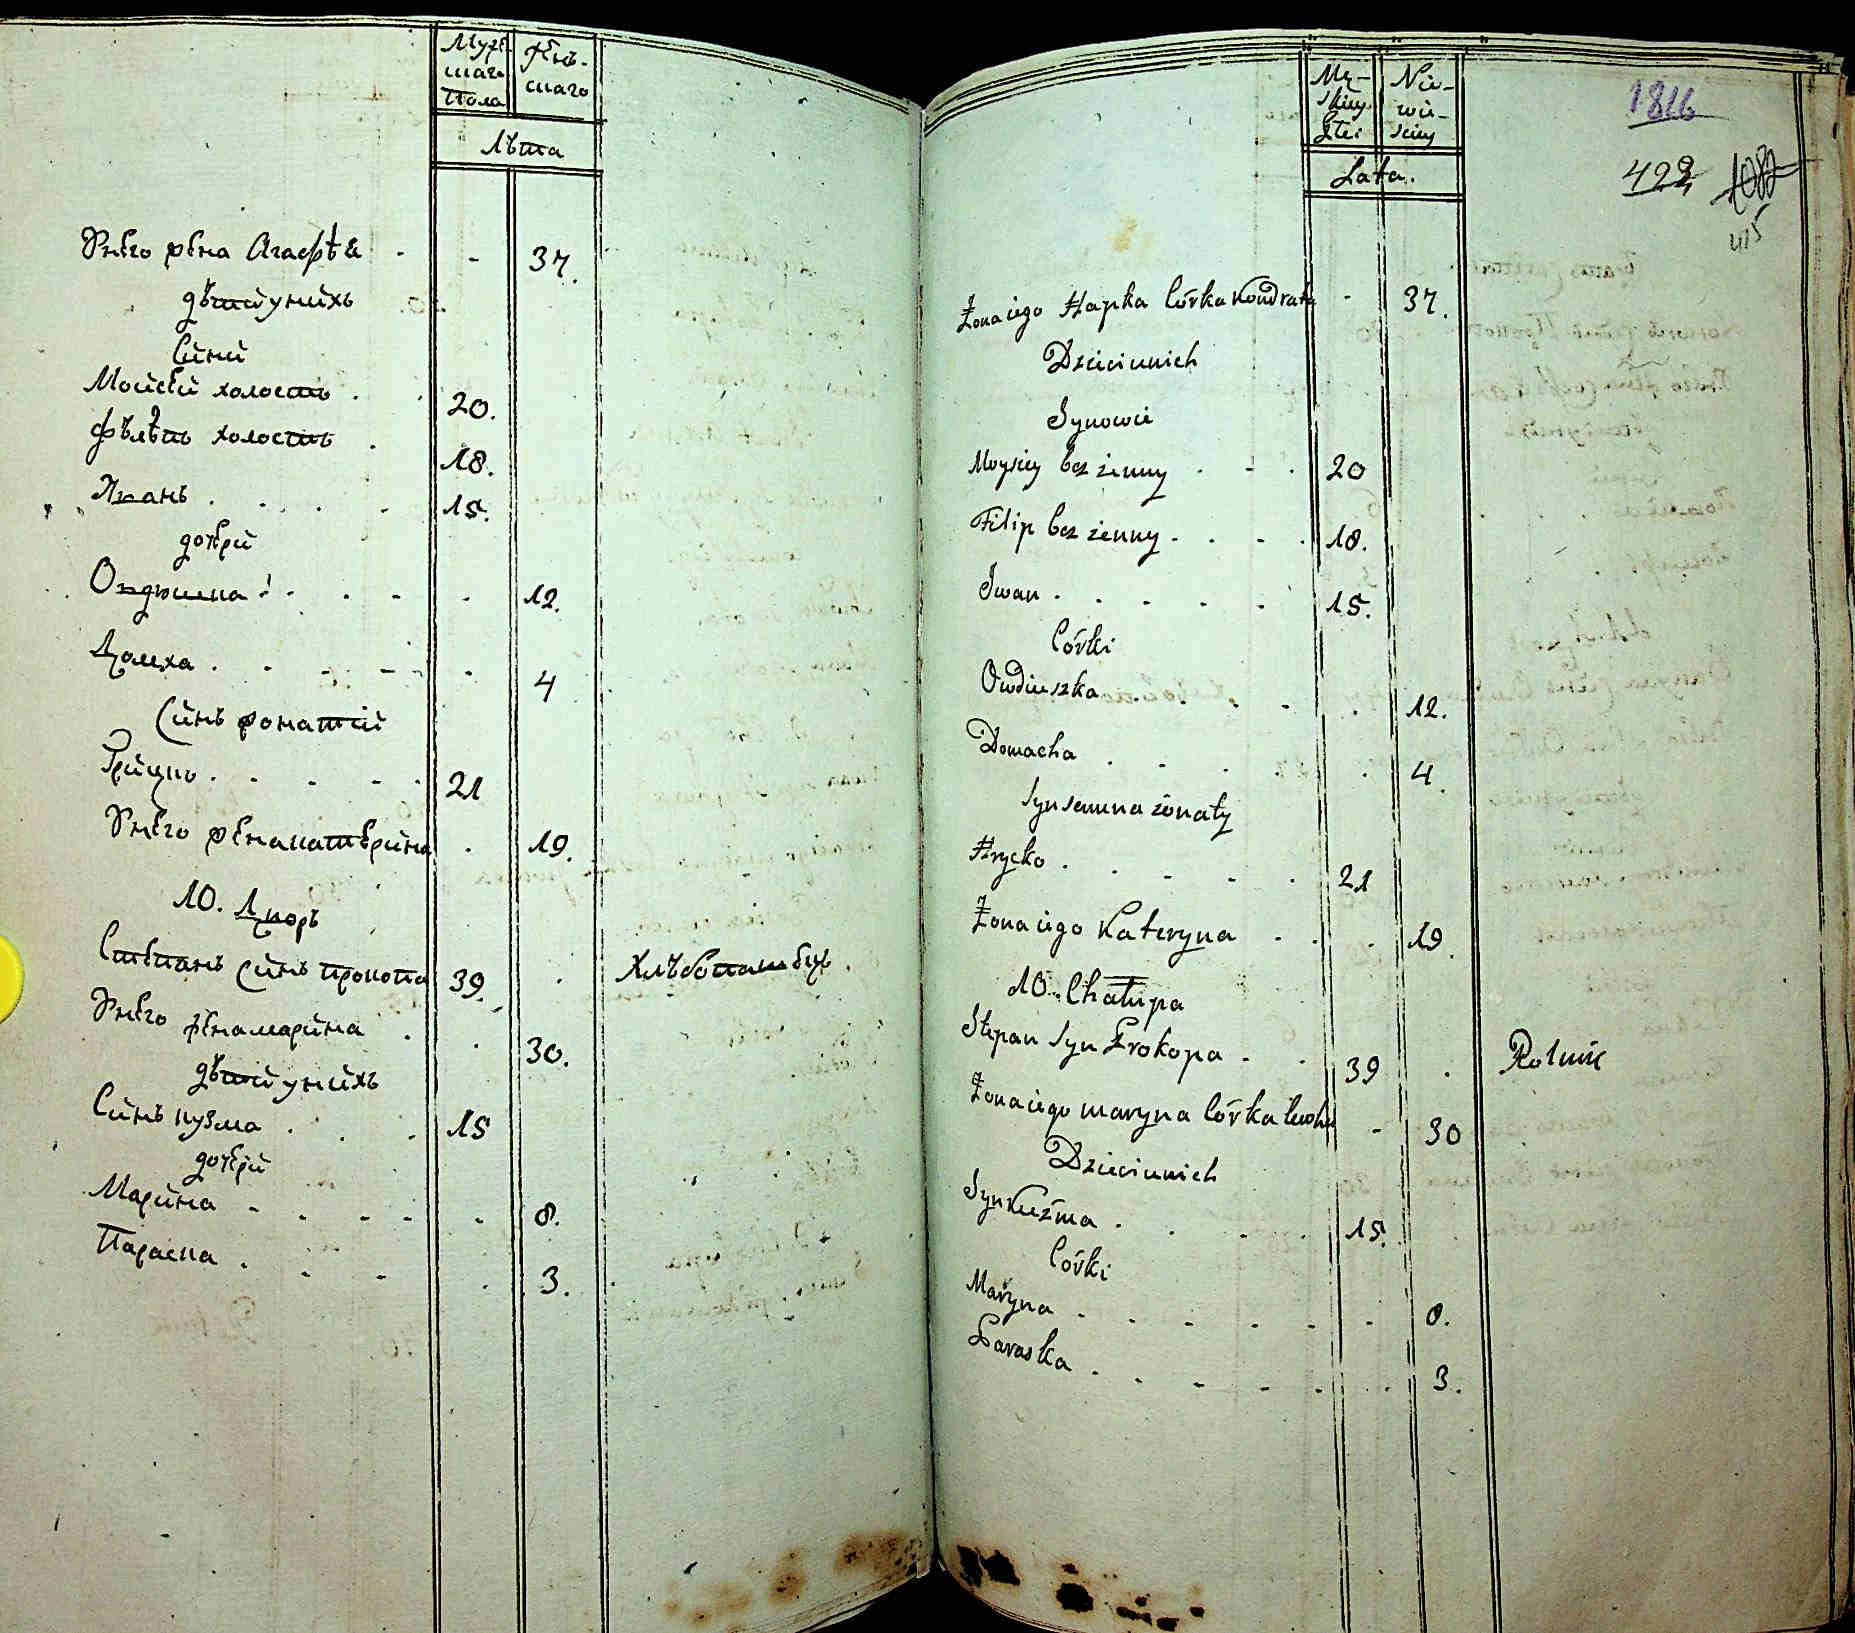 Мужескаго Пола
Женскаго
Лѣта
У него жена Агафѣа 37.
дѣтей у нихъ
Сины
Мойсей холостъ 20.
Филипъ холостъ 18.
Иванъ 15.
дочери
Овдюшка 12.
Домха 4
Синъ жонатий
Грицко 21
У него жена катерина 19.
10. Дворъ
Степанъ Синъ Прокопа 39. Хлѣбопашецъ
У него жена марина 30.
дѣтей у нихъ
Синъ кузма 15
дочери
Марина 8.
Параска 3.
Męskiey Płci
Niewieściey
Lata.
1816
422 1082
415
Żona iego Hapka Córka Kondrata 37.
Dzieci u nich
Synowie
Moysiey bez żenny 20
Filip bez żenny 18.
Iwan 15.
Córki
Owdiuszka 12.
Domacha 4.
Syn żonaty
Hrycko 21
Żona iego Kateryna 19
10. Chałupa
Stepan Syn Prokopa 39 Rolnik
Żona iego maryna Córka 30
Dzieci u nich
Syn Kuźma 15.
Córki
Maryna 8.
Paraska 3.